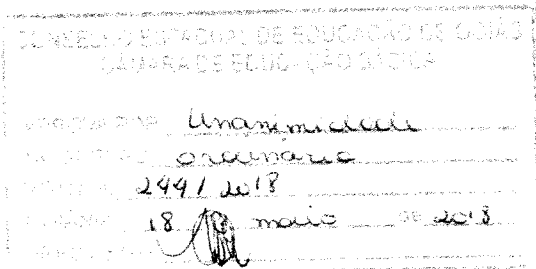 CONSELHO ESTADUAL DE EDUCAÇÃO DE GOIÁS
CÂMARA DE EDUCAÇÃO BÁSICA
Unanimidade
ordinária
244/2018
18 maio DE 2018